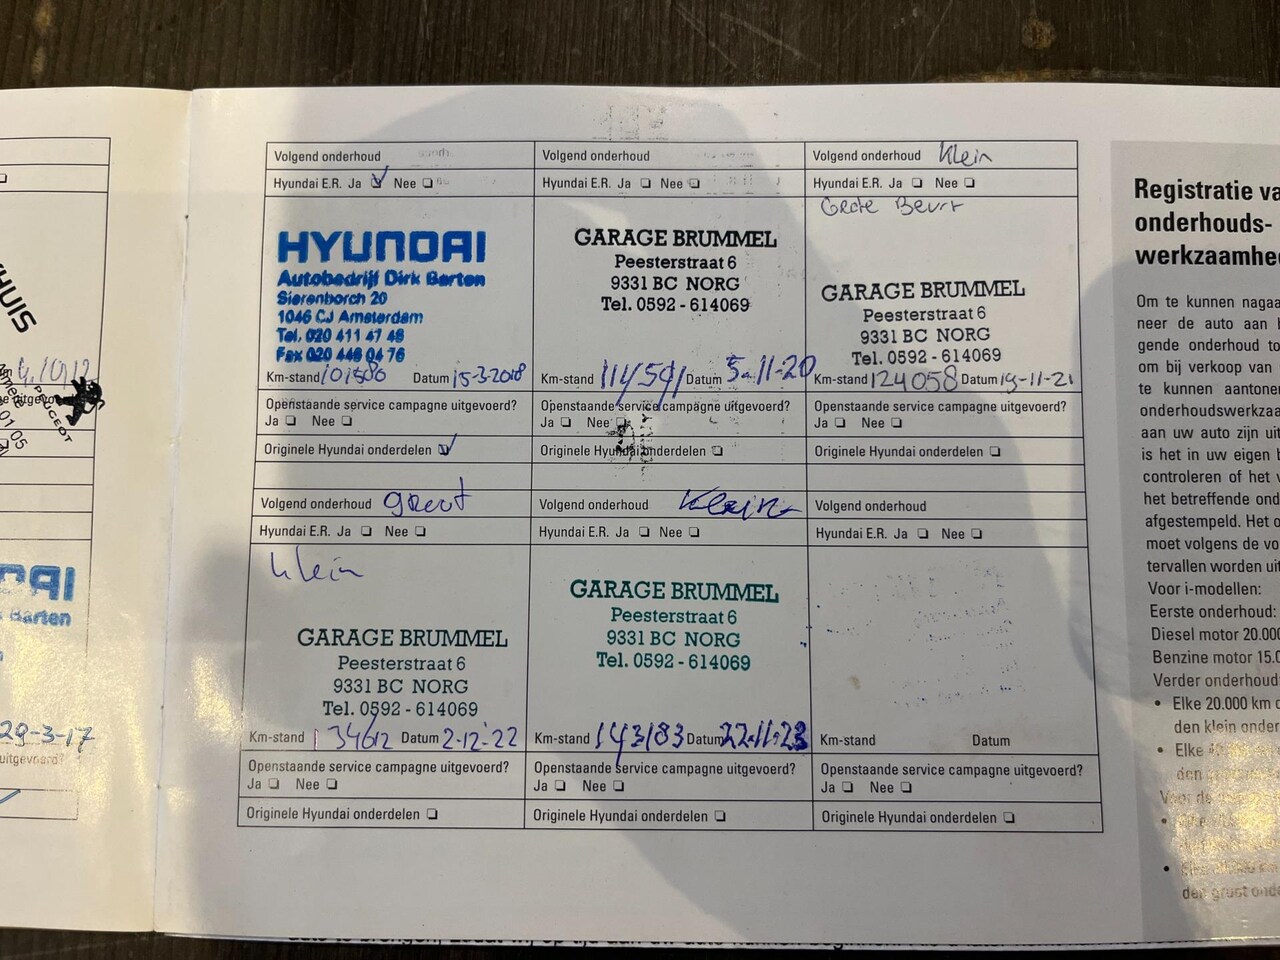 Volgend onderhoud
Hyundai E.R. Ja Nee
HYUNDAI
Autobedrijf Dirk Barten
Sierenborch 20
1046 CJ Amsterdam
Tel. 020 411 47 48
Fax 020 448 04 76
Km-stand 101580 Datum 15-3-2018
Openstaande service campagne uitgevoerd?
Ja Nee
Originele Hyundai onderdelen
Volgend onderhoud
Hyundai E.R. Ja Nee
GARAGE BRUMMEL
Peesterstraat 6
9331 BC NORG
Tel. 0592 - 614069
Km-stand 114591 Datum 5-11-20
Openstaande service campagne uitgevoerd?
Ja Nee
Originele Hyundai onderdelen
Volgend onderhoud Klein
Hyundai E.R. Ja Nee
Grote Beurt
GARAGE BRUMMEL
Peesterstraat 6
9331 BC NORG
Tel. 0592 - 614069
Km-stand 124058 Datum 19-11-21
Openstaande service campagne uitgevoerd?
Ja Nee
Originele Hyundai onderdelen
Volgend onderhoud groot
Hyundai E.R. Ja Nee
Klein
GARAGE BRUMMEL
Peesterstraat 6
9331 BC NORG
Tel. 0592 - 614069
Km-stand 134612 Datum 2-12-'22
Openstaande service campagne uitgevoerd?
Ja Nee
Originele Hyundai onderdelen
Volgend onderhoud Klein
Hyundai E.R. Ja Nee
GARAGE BRUMMEL
Peesterstraat 6
9331 BC NORG
Tel. 0592 - 614069
Km-stand 143183 Datum 22-11-23
Openstaande service campagne uitgevoerd?
Ja Nee
Originele Hyundai onderdelen
Volgend onderhoud
Hyundai E.R. Ja Nee
Km-stand Datum
Openstaande service campagne uitgevoerd?
Ja Nee
Originele Hyundai onderdelen
HUIS
PEUGEOT
01 05
Barten
29-3-17
uitgevoerd?
Registratie va
onderhouds-
werkzaamhe
Om te kunnen nagaa
neer de auto aan
gende onderhoud to
om bij verkoop van
te kunnen aantone
onderhoudswerkzaa
aan uw auto zijn uit
is het in uw eigen b
controleren of het v
het betreffende ond
afgestempeld. Het o
moet volgens de vo
tervallen worden uit
Voor i-modellen:
Eerste onderhoud:
Diesel motor 20.000
Benzine motor 15.0
Verder onderhoud:
• Elke 20.000 km
den klein onder
• Elke
den
den groot onde